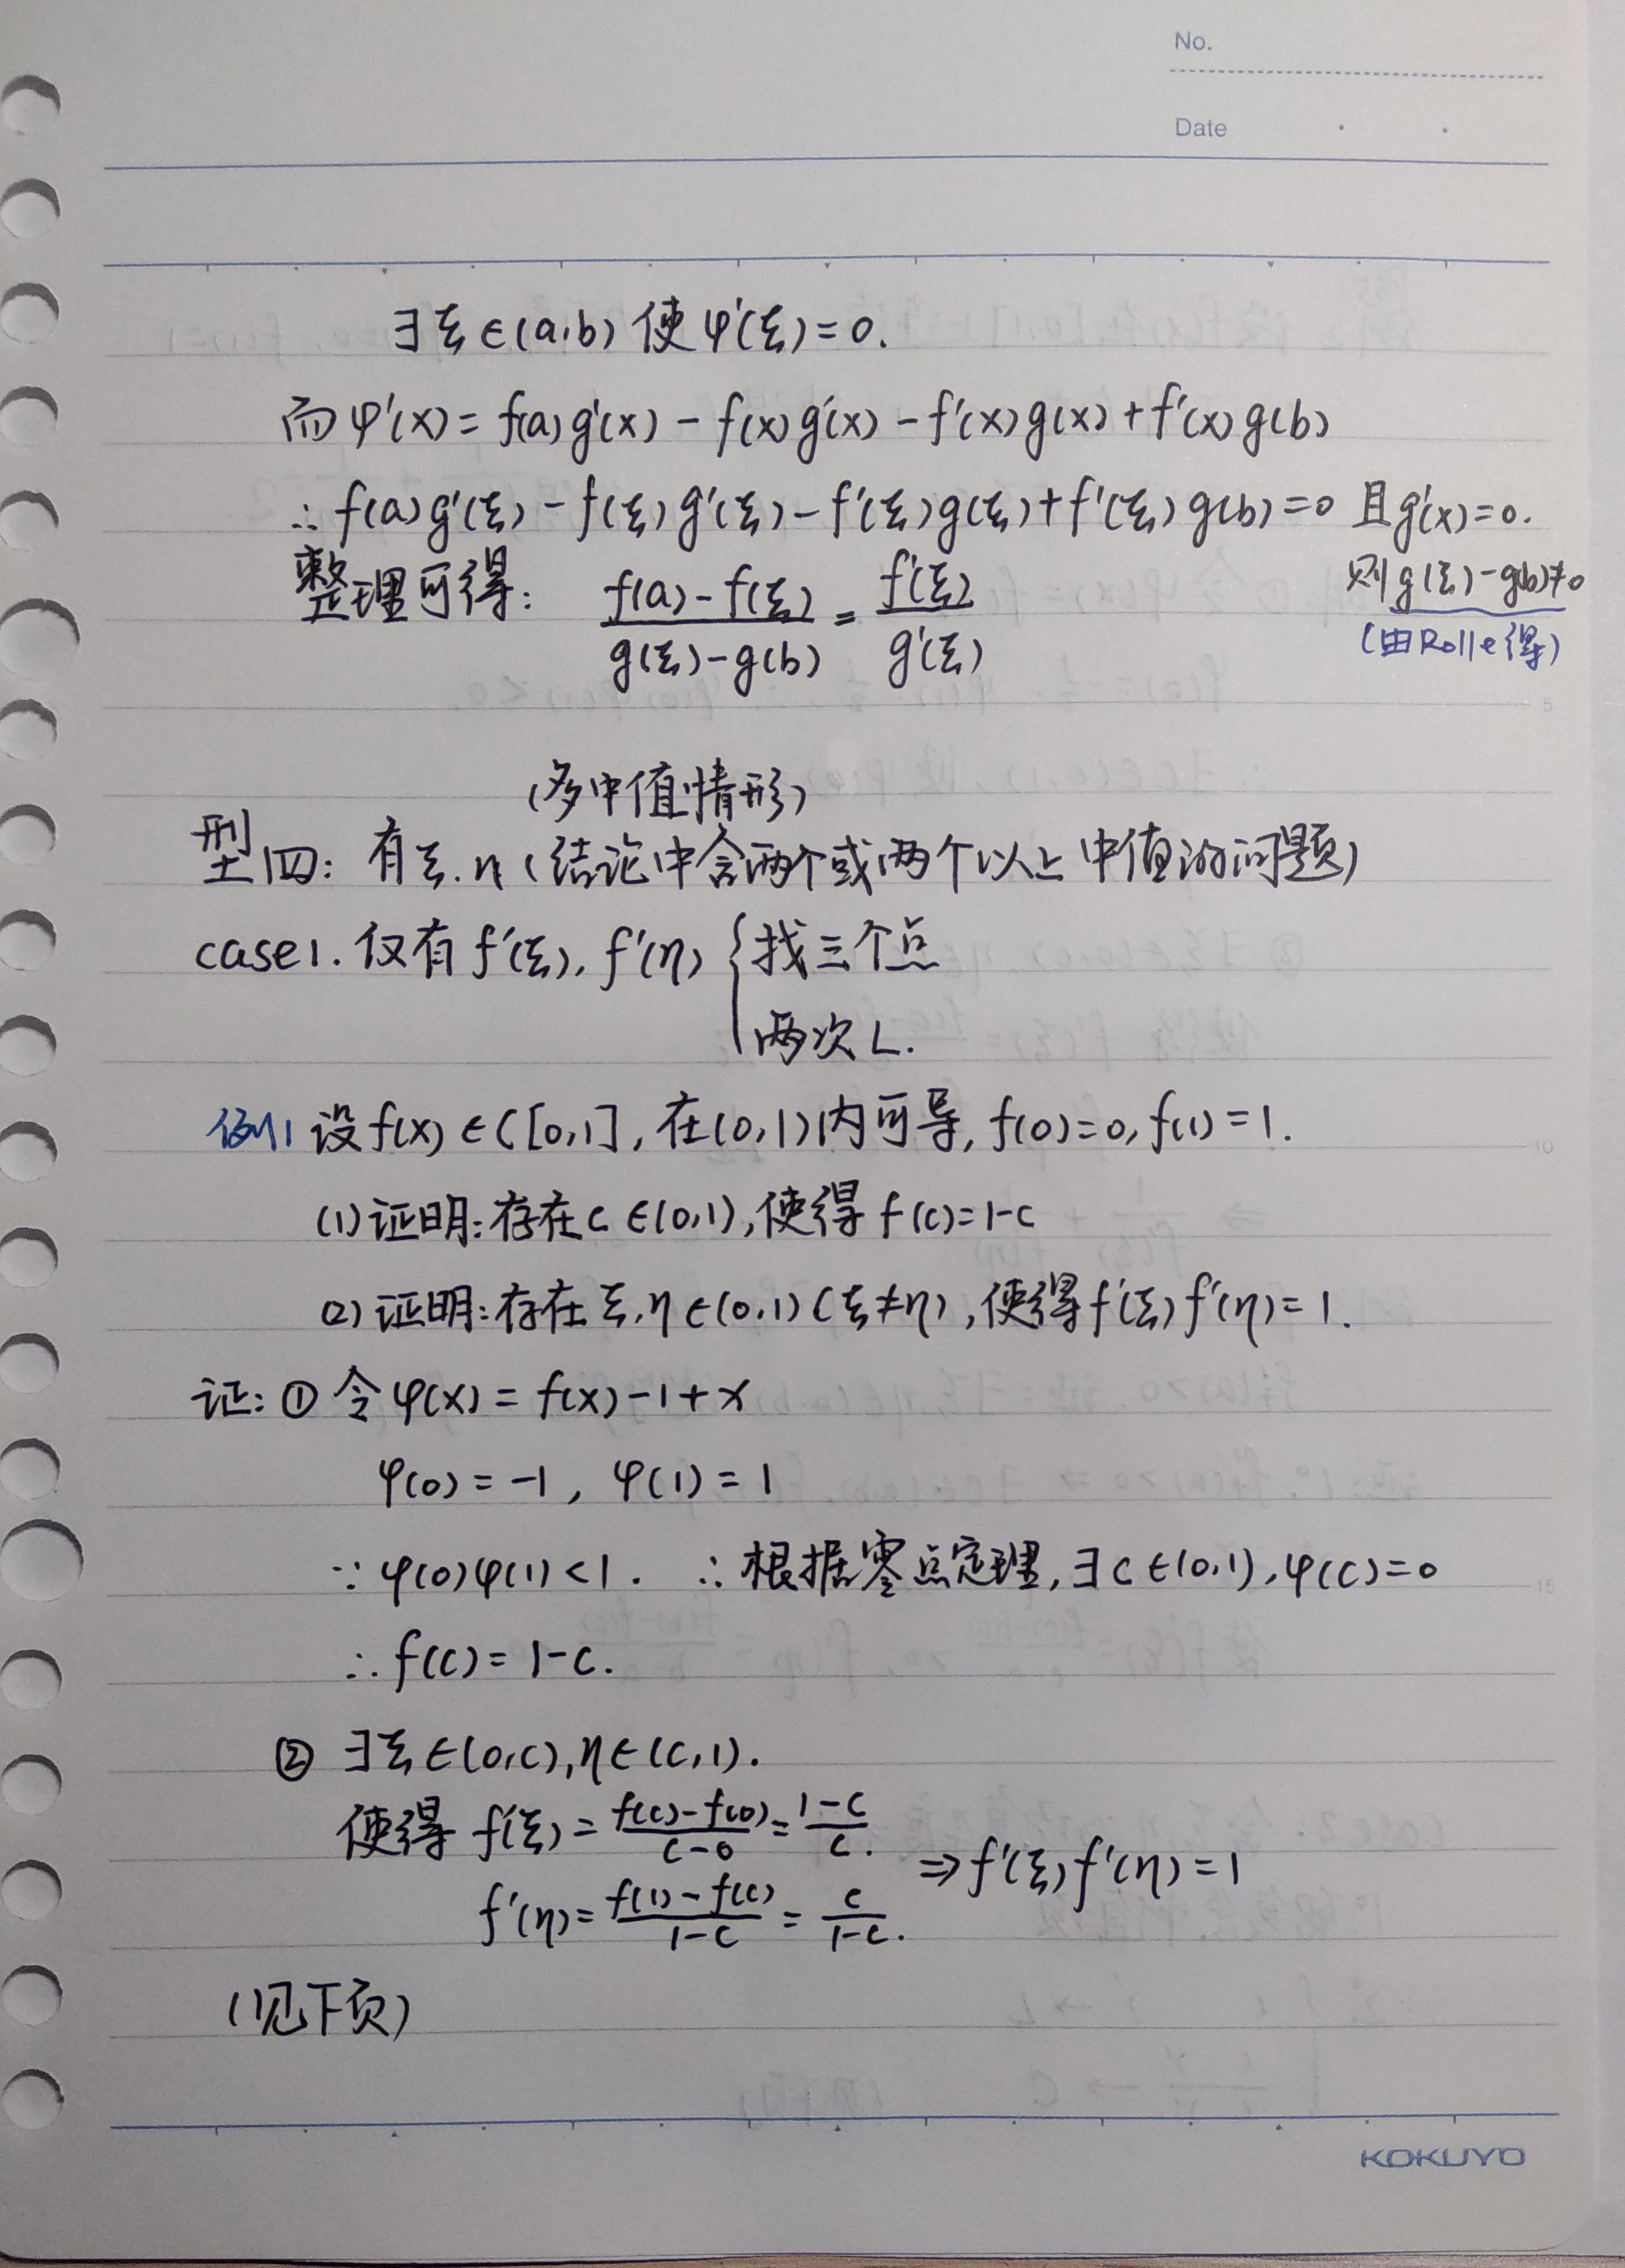 No.
Date
∃ξ∈(a,b) 使φ'(ξ)=0.
而φ'(x)=f(a)g'(x)-f(x)g'(x)-f'(x)g(x)+f'(x)g(b)
∴f(a)g'(ξ)-f(ξ)g'(ξ)-f'(ξ)g(ξ)+f'(ξ)g(b)=0 且g'(x)=0.
则g(ξ)-g(b)≠0
(由Rolle得)
整理可得: \frac{f(a)-f(ξ)}{g(ξ)-g(b)}=\frac{f'(ξ)}{g'(ξ)}
(多中值情形)
型四: 有ξ.η(结论中含两个或两个以上中值的问题)
case1.仅有f'(ξ), f'(η) { 找三个点
两次L.
例1 设f(x)∈C[0,1],在(0,1)内可导,f(0)=0,f(1)=1.
(1)证明:存在c∈(0,1),使得f(c)=1-c
(2)证明:存在ξ,η∈(0,1)(ξ≠η),使得f'(ξ)f'(η)=1.
证:①令φ(x)=f(x)-1+x
φ(0)=-1, φ(1)=1
∵φ(0)φ(1)<1. ∴根据零点定理,∃c∈(0,1),φ(c)=0
∴f(c)=1-c.
② ∃ξ∈(0,c),η∈(c,1).
使得 f'(ξ)=\frac{f(c)-f(0)}{c-0}=\frac{1-c}{c}.
f'(η)=\frac{f(1)-f(c)}{1-c}=\frac{c}{1-c}.
⇒f'(ξ)f'(η)=1
(见下页)
5
10
15
KOKUYO